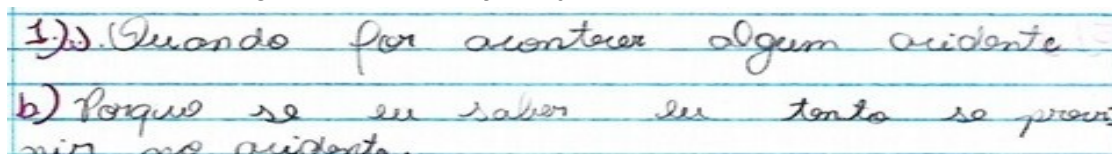 1.). Quando for acontecer algum acidente
b) Porque se eu saber eu tento se previ
nir no acidente.